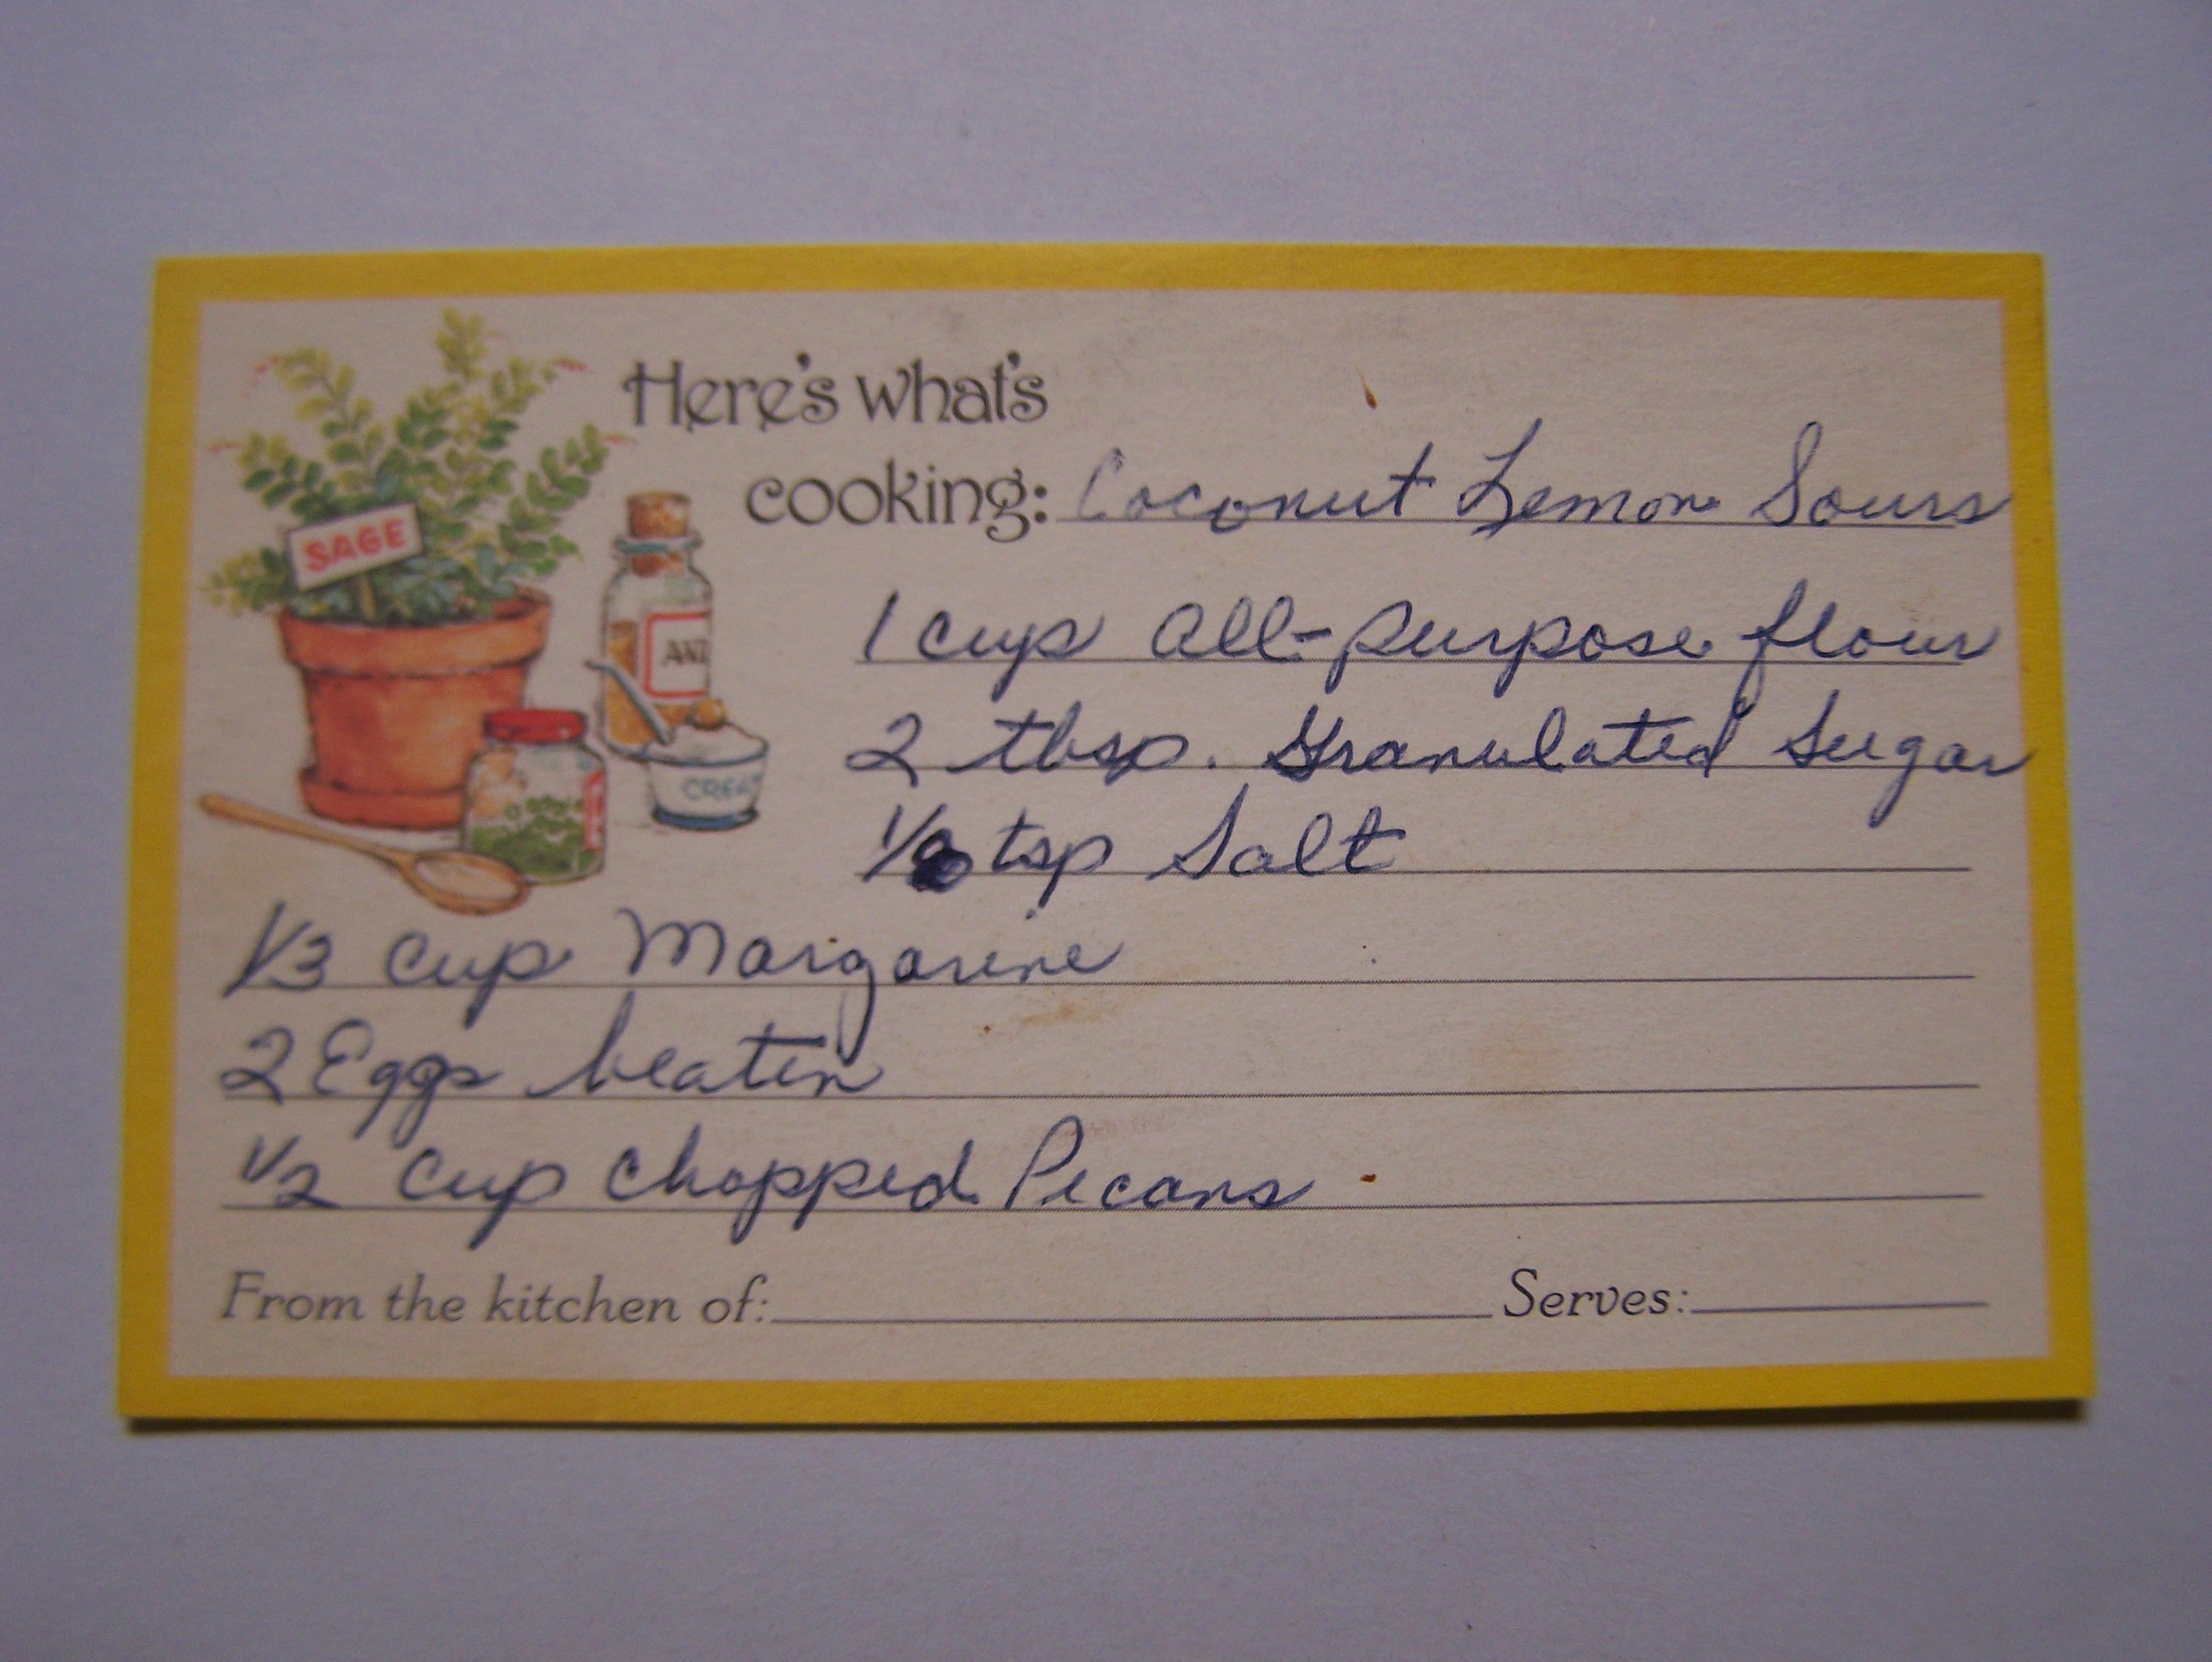 Here's what's
cooking: Coconut Lemon Sours
SAGE
1 cup all-purpose flour
2 tbsp. Granulated Sugar
tsp Salt
1/3 cup Margarine
2 Eggs beaten
1/2 cup chopped Pecans
From the kitchen of: Serves: